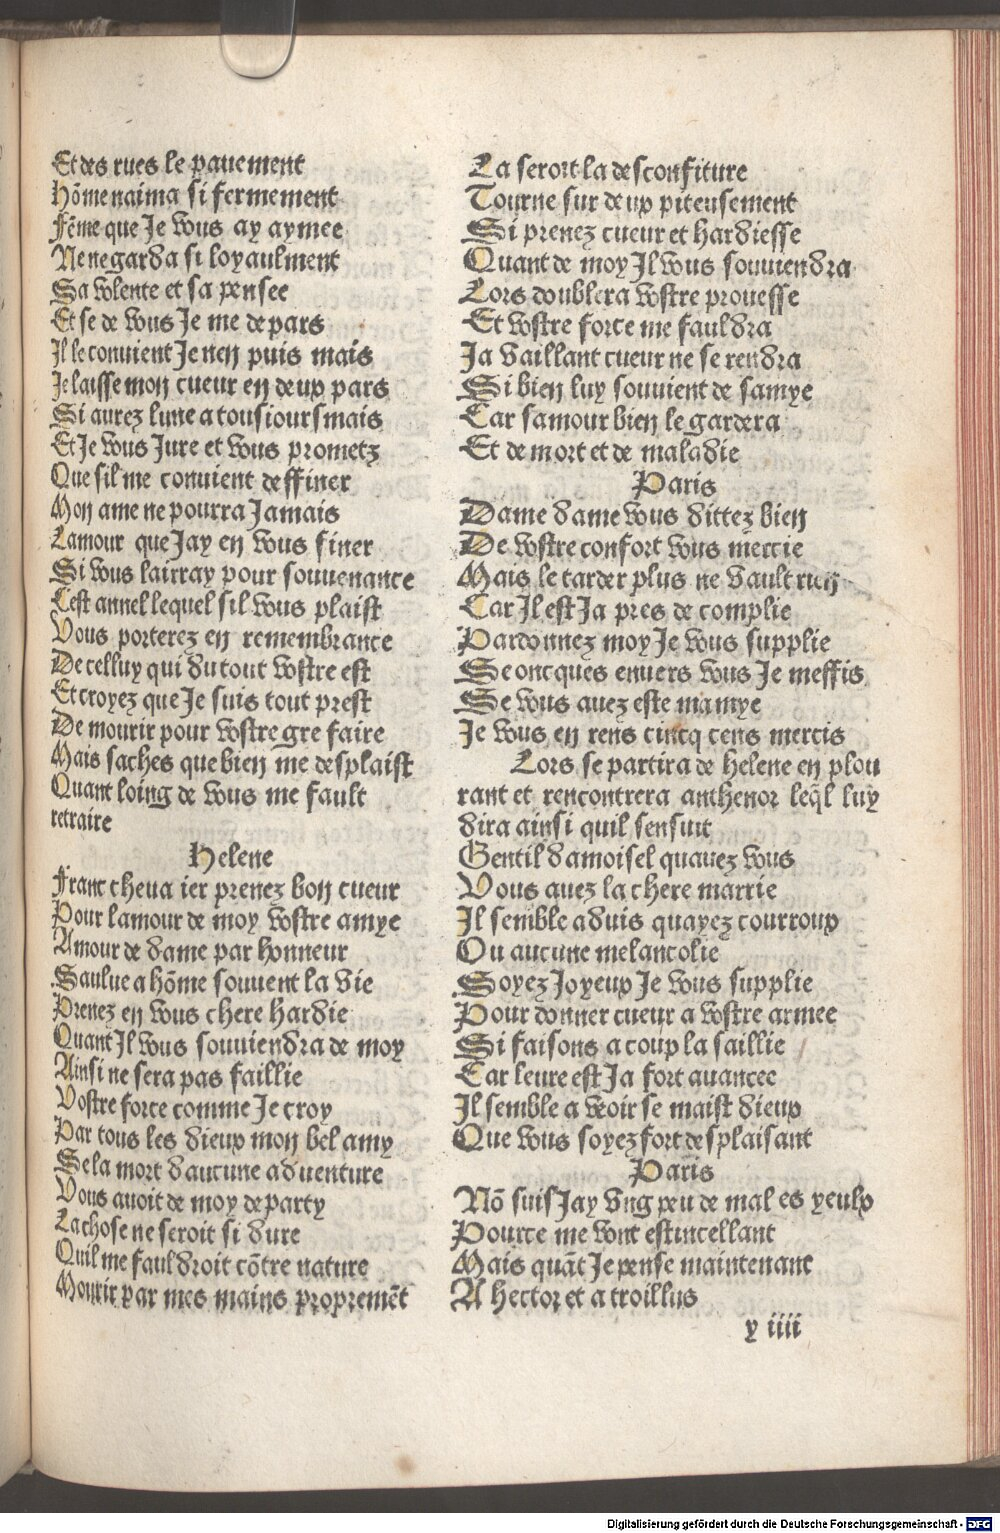 Et des rues le pauement
Hõme naima si fermement
Fẽme que Je vous ay aymee
Ne ne garda si loyaulment
Sa volente et sa pensee
Et se de vous Je me depars
Il le conuient Je nen puis mais
Je laisse mon cueur en deux pars
Si aurez lune a tousiours mais
Et Je vous Jure et vous prometz
Que sil me conuient deffiner
Mon ame ne pourra Jamais
Lamour que Jay en vous finer
Si vous lairray pour souuenance
Cest annel lequel sil vous plaist
Vous porterez en remembrance
De celluy qui du tout vostre est
Et croyez que Je suis tout prest
De mourir pour vostre gre faire
Mais saches que bien me desplaist
Quant loing de vous me fault
retraire
Helene
Franc cheua ier prenez bon cueur
Pour lamour de moy vostre amye
Amour de dame par honneur
Saulue a hõme souuent la vie
Prenez en vous chere hardie
Quant Il vous souuiendra de moy
Ainsi ne sera pas faillie
Vostre force comme Je croy
Par tous les dieux mon bel amy
Se la mort daucune aduenture
Vous auoit de moy departy
La chose ne seroit si dure
Quil me fauldroit cõtre nature
Mourir par mes mains propremẽt
La seroit la desconfiture
Tourne sur deup piteusement
Si prenez cueur et hardiesse
Quant de moy Il vous souuiendra
Lors doublera vostre prouesse
Et vostre force me fauldra
Ja vaillant cueur ne se rendra
Si bien luy souuient de samye
Car samour bien le gardera
Et de mort et de maladie
Paris
Dame dame vous dittez bien
De vostre confort vous mercie
Mais le tarder plus ne vault rien
Car Il est Ja pres de complie
Pardonnez moy Je vous supplie
Se oncques enuers vous Je meffis
Se vous auez este mamye
Je vous en rens cincq cens mercis
Lors se partira de helene en plou
rant et rencontrera anthenor leq̃l luy
dira ainsi quil sensuit
Gentil damoisel quauez vous
Vous auez la chere marrie
Il semble aduis quayez courroux
Ou aucune melancolie
Soyez Joyeux Je vous supplie
Pour donner cueur a vostre armee
Si faisons a coup la saillie
Car leure est Ja fort auancee
Il semble a veoir se maist dieux
Que vous soyez fort desplaisant
Paris
Nõ suis Jay vng peu de mal es yeulx
Pource me vont estincellant
Mais quãt Je pense maintenant
A hector et a troillus
y iiii
Digitalisierung gefördert durch die Deutsche Forschungsgemeinschaft - DFG